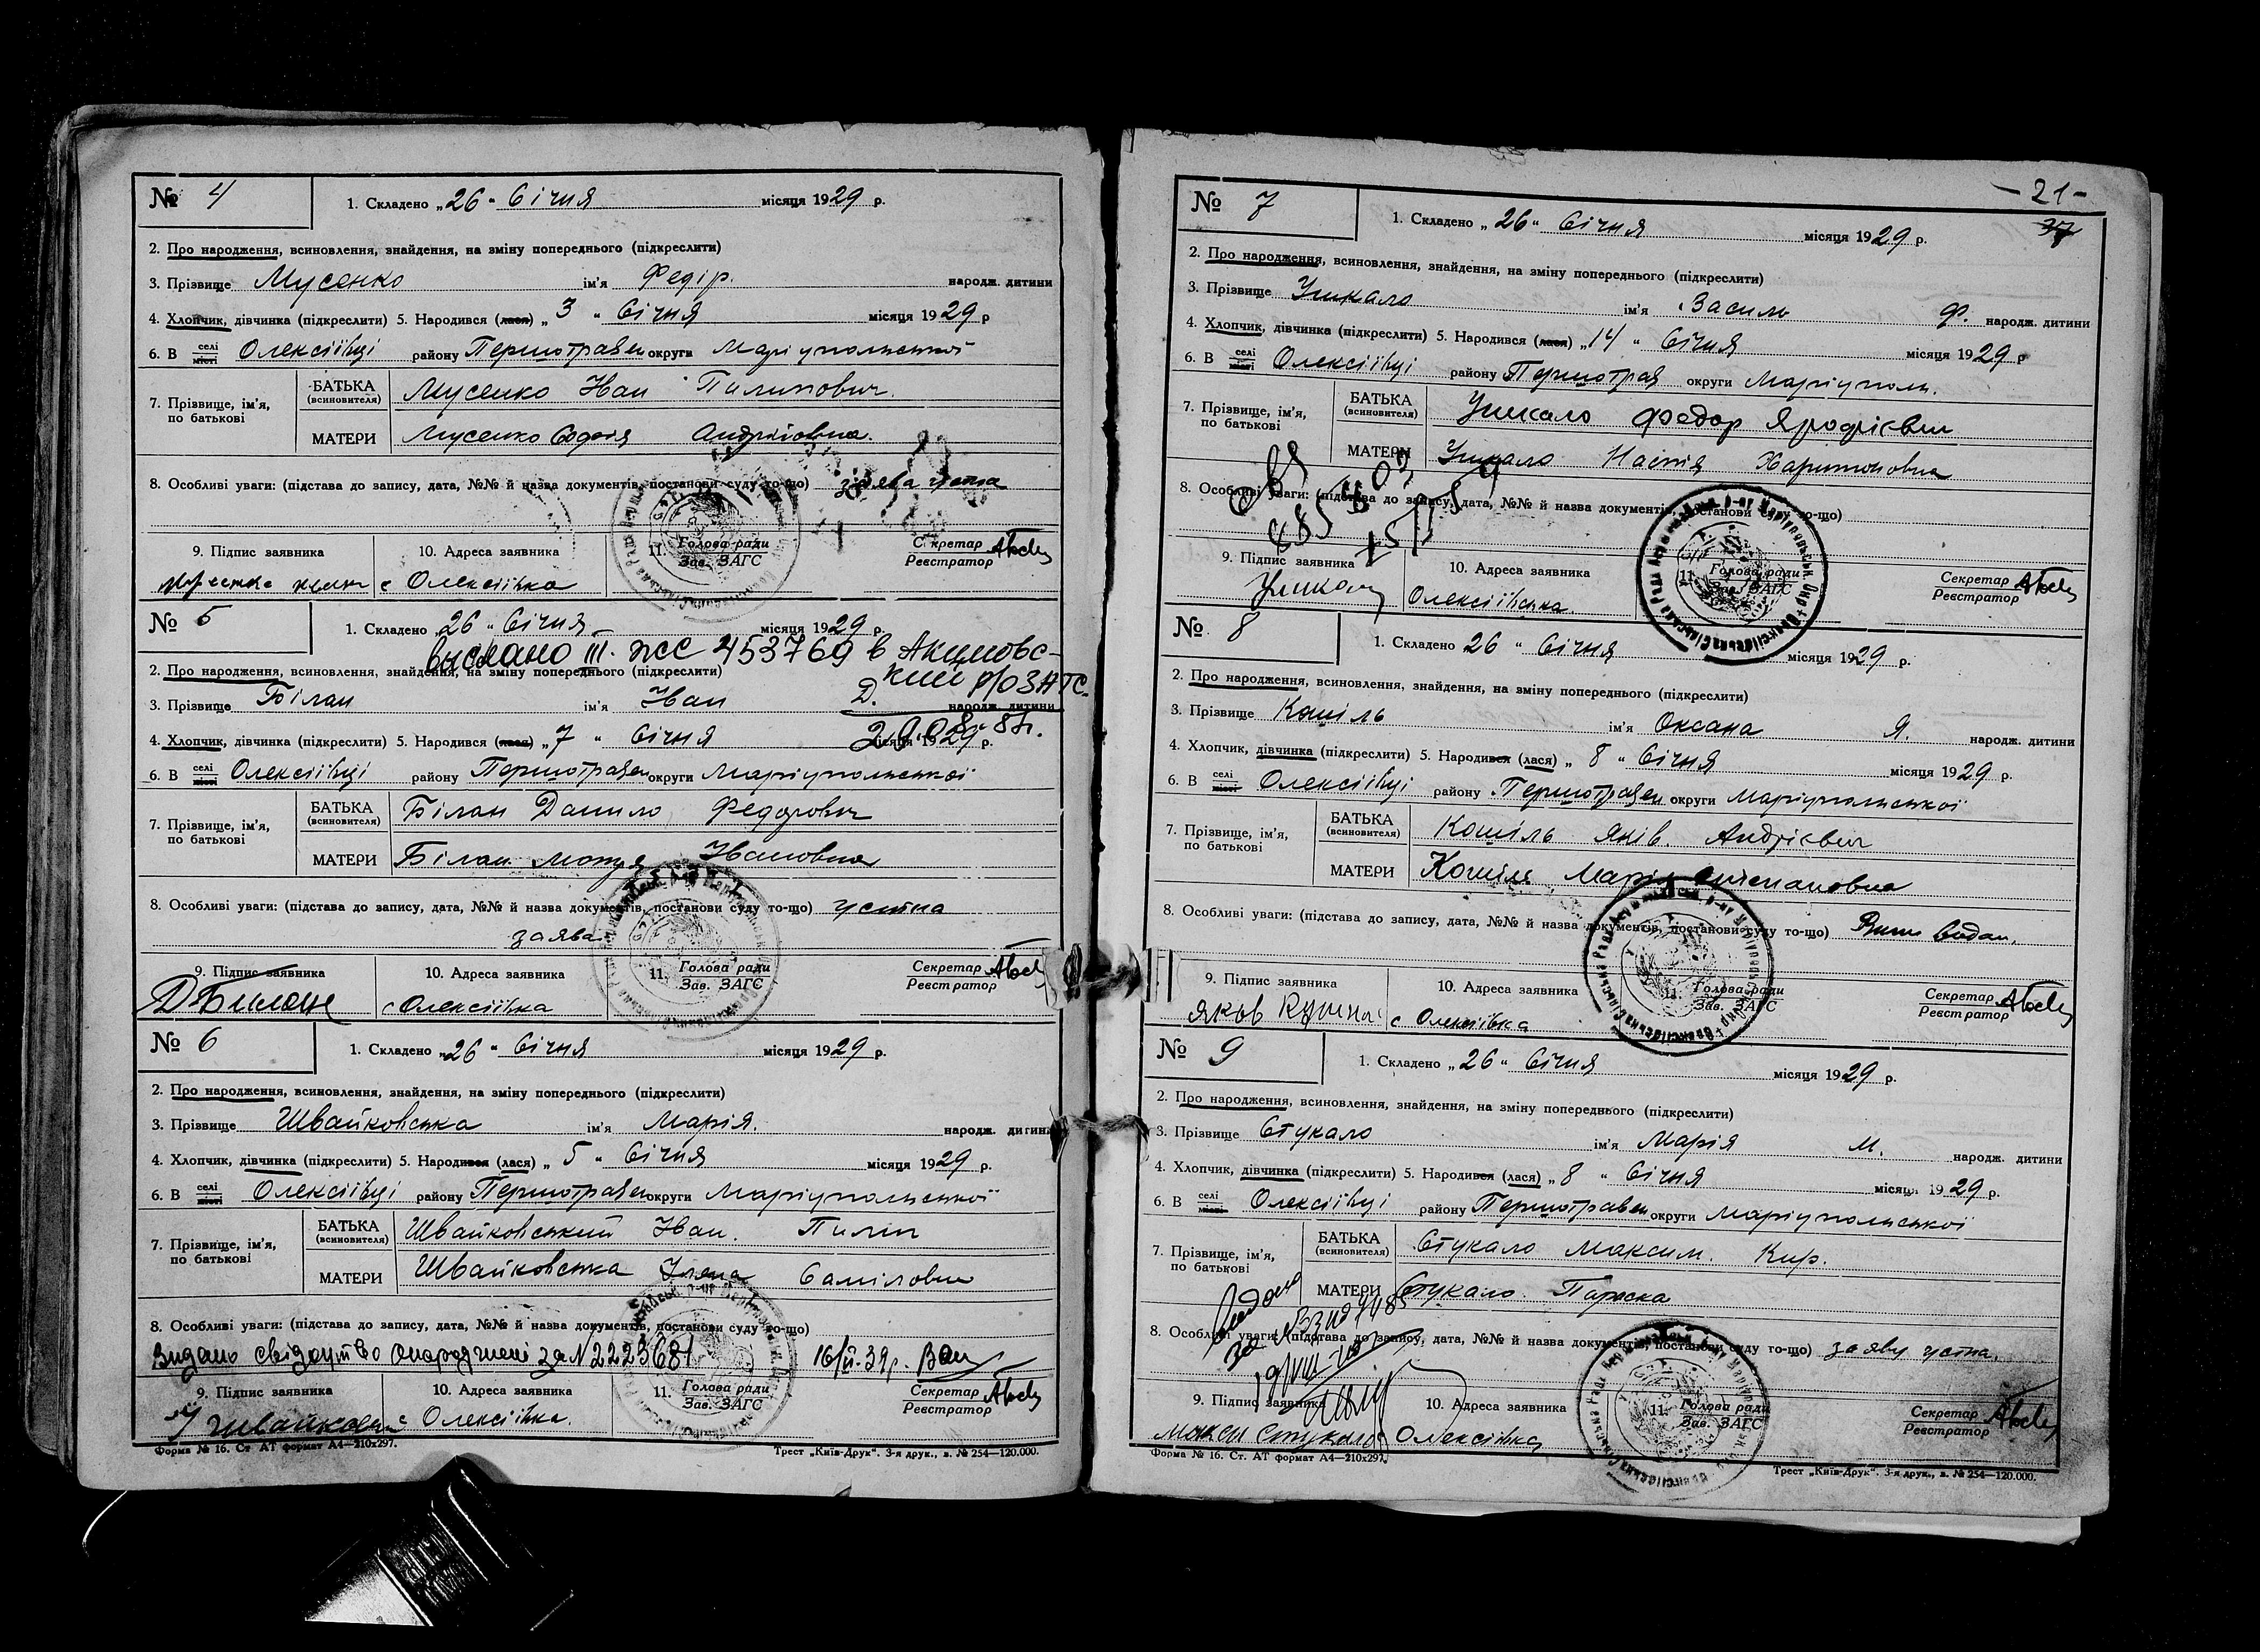 № 4
1. Складено „26“ Січня місяця 1929 р.
2. Про народження, всиновлення, знайдення, на зміну попереднього (підкреслити)
3. Прізвище Мусенко ім'я Федір. народж. дитини
4. Хлопчик, дівчинка (підкреслити) 5. Народився (лася) „3“ Січня місяця 1929 р
6. В селі місті Олексіївці району Першотравен округи Маріупольської
7. Прізвище, ім'я, по батькові
БАТЬКА (всиновителя) Мусенко Іван Пилипович
МАТЕРИ Мусенко Андріївна.
8. Особливі уваги: (підстава до запису, дата, №№ й назва документів, постанови суду то-що) заява устна
9. Підпис заявника 10. Адреса заявника 11. Голова ради Зав. ЗАГС Секретар Реєстратор
с Олексіївка
№ 5
1. Складено „26“ Січня місяця 1929 р.
выслано III. жс 453769 в Акимовс-
кий р/о ЗАГС.
2. Про народження, всиновлення, знайдення, на зміну попереднього (підкреслити)
3. Прізвище Білан ім'я Іван Д. народж. дитини
29.08.85г.
4. Хлопчик, дівчинка (підкреслити) 5. Народився (лася) „7“ Січня місяця 1929 р.
6. В селі місті Олексіївці району Першотравен округи Маріупольської
7. Прізвище, ім'я, по батькові
БАТЬКА (всиновителя) Білан Данило Федорович
МАТЕРИ Білан Мотря Івановна
8. Особливі уваги: (підстава до запису, дата, №№ й назва документів, постанови суду то-що) устна
заява
9. Підпис заявника 10. Адреса заявника 11. Голова ради Зав. ЗАГС Секретар Реєстратор
Д Билан с Олексіївка
№ 6
1. Складено „26“ Січня місяця 1929 р.
2. Про народження, всиновлення, знайдення, на зміну попереднього (підкреслити)
3. Прізвище Швайковська ім'я Марія. народж. дитини
4. Хлопчик, дівчинка (підкреслити) 5. Народився (лася) „5“ Січня місяця 1929 р.
6. В селі місті Олексіївці району Першотравен округи Маріупольської
7. Прізвище, ім'я, по батькові
БАТЬКА (всиновителя) Швайковський Іван. Пилип
МАТЕРИ Швайковська Ілена Саміловна
8. Особливі уваги: (підстава до запису, дата, №№ й назва документів, постанови суду то-що)
Видано свідоцтво о народженні за N 2223681 16/II-39р.
9. Підпис заявника 10. Адреса заявника 11. Голова ради Зав. ЗАГС Секретар Реєстратор
с Олексіївка.
Форма № 16. Ст. АТ формат А4—210х297.
Трест „Київ-Друк“. 3-я друк., в. № 254—120.000.
- 21 -
37
№ 7
1. Складено „26“ Січня місяця 1929 р.
2. Про народження, всиновлення, знайдення, на зміну попереднього (підкреслити)
3. Прізвище Ушкало ім'я Василь Ф. народж. дитини
4. Хлопчик, дівчинка (підкреслити) 5. Народився (лася) „14“ Січня місяця 1929 р
6. В селі місті Олексіївці району Першотрав округи Маріуполь.
7. Прізвище, ім'я, по батькові
БАТЬКА (всиновителя) Ушкало Федор
МАТЕРИ Ушкало Настя Харитоновна
8. Особливі уваги: (підстава до запису, дата, №№ й назва документів, постанови суду то-що)
9. Підпис заявника 10. Адреса заявника 11. Голова ради Зав. ЗАГС Секретар Реєстратор
Ушкало Олексіївська
№ 8
1. Складено 26“ Січня місяця 1929 р.
2. Про народження, всиновлення, знайдення, на зміну попереднього (підкреслити)
3. Прізвище Кошіль ім'я Оксана Я. народж. дитини
4. Хлопчик, дівчинка (підкреслити) 5. Народився (лася) „8“ Січня місяця 1929 р.
6. В селі місті Олексіївці району Першотравен округи Маріупольської
7. Прізвище, ім'я, по батькові
БАТЬКА (всиновителя) Кошіль Яків. Андрієвич
МАТЕРИ Кошіль Марія Степановна
8. Особливі уваги: (підстава до запису, дата, №№ й назва документів, постанови суду то-що)
9. Підпис заявника 10. Адреса заявника 11. Голова ради Зав. ЗАГС Секретар Реєстратор
Яков с Олексіївка
№ 9
1. Складено „26“ Січня місяця 1929 р.
2. Про народження, всиновлення, знайдення, на зміну попереднього (підкреслити)
3. Прізвище Стукало ім'я Марія М. народж. дитини
4. Хлопчик, дівчинка (підкреслити) 5. Народився (лася) „8“ Січня місяця 1929 р.
6. В селі місті Олексіївці району Першотравен округи Маріупольської
7. Прізвище, ім'я, по батькові
БАТЬКА (всиновителя) Стукало Максим. Кир.
МАТЕРИ Стукало Параска
8. Особливі уваги: (підстава до запису, дата, №№ й назва документів, постанови суду то-що) заява устна.
9. Підпис заявника 10. Адреса заявника 11. Голова ради Зав. ЗАГС Секретар Реєстратор
Максим Стукало Олексіївка
Форма № 16. Ст. АТ формат А4—210х297.
Трест „Київ-Друк“. 3-я друк., в. № 254—120.000.